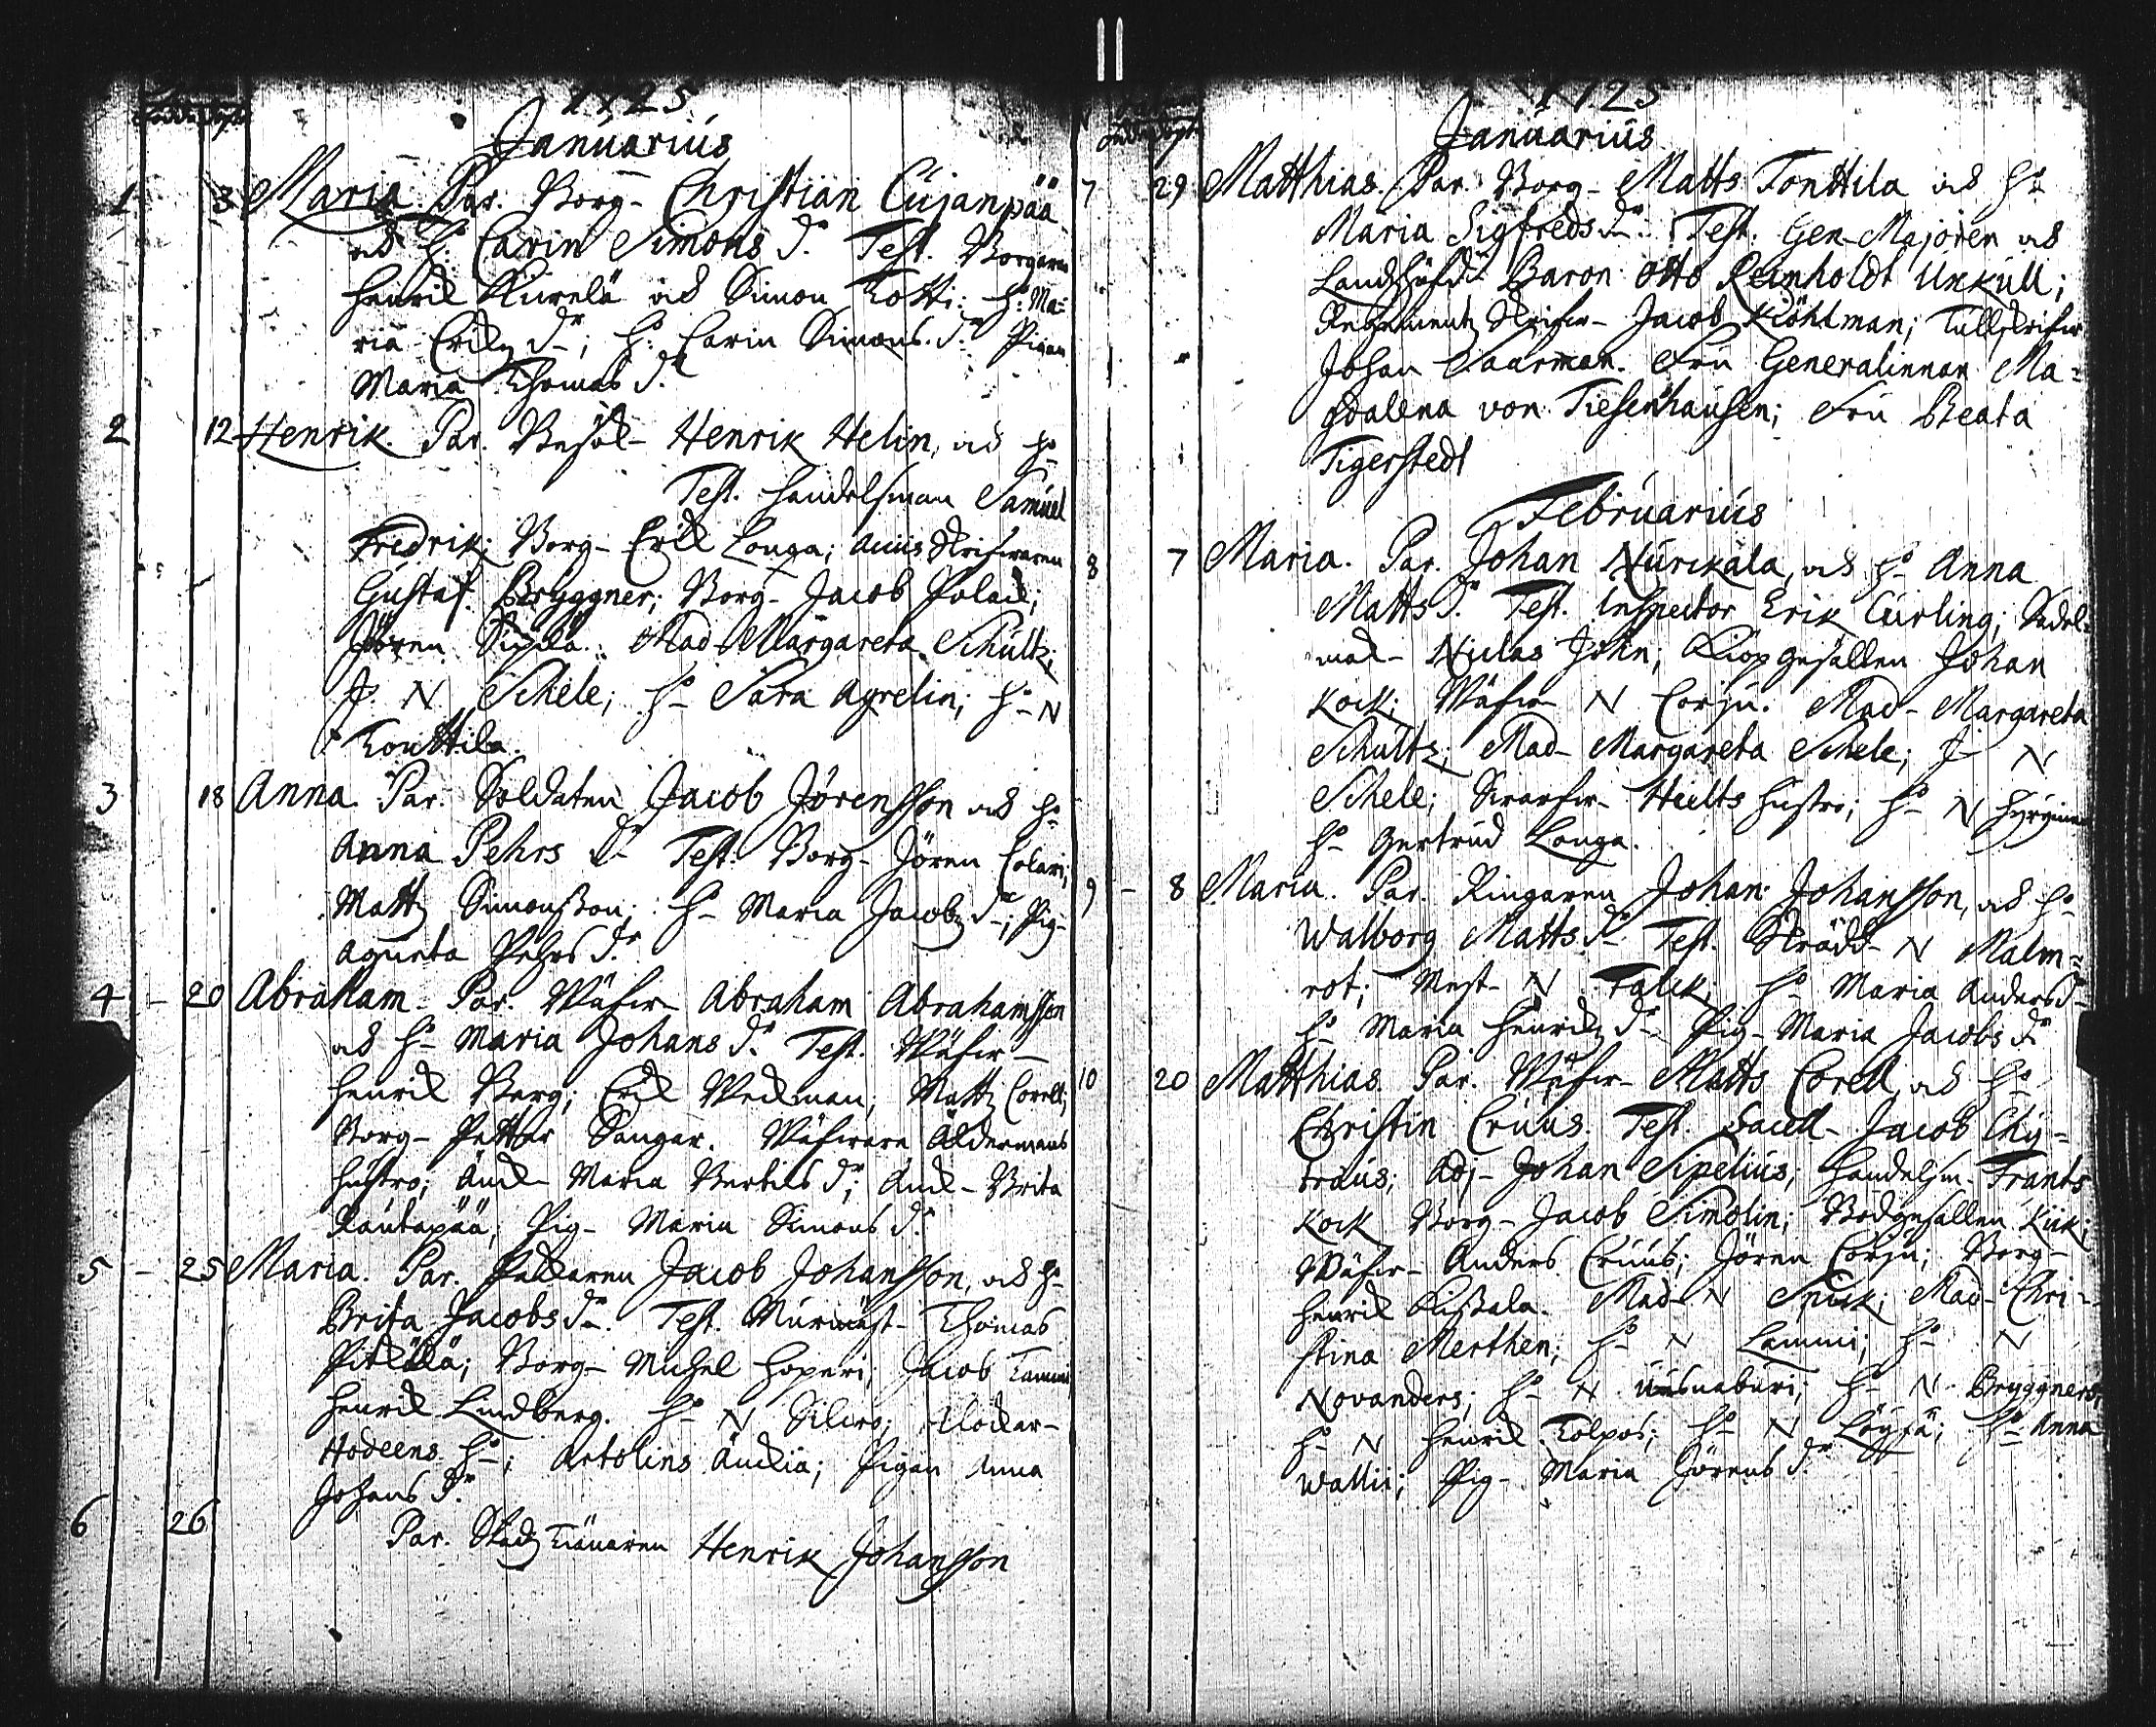 1725
Januarius
1 3 Maria. Par. Borg- Christian Cujanpää
och H: Carin Simons dr Test. Borgaren
Henrik Kurelä och Simon Kotti: H: Ma=
ria Eriks dr; H: Carin Simons dr Pigan
Maria Thomas dr
2 12 Henrik. Par. Besök- Henrik Helin, och Ho
Test. Handelsman Samuel
Fredrik; Borg- Erik Longa; Accis Skrifwaren
Gustaf Bryggner; Borg- Jacob Polack;
Jören Sipilä. Mad- Margareta Schultz;
J. N Schele; Ho Sara Agrelin; Ho N
Konttila.
3 18 Anna. Par. Soldaten Jacob Jörensson och Ho
Anna Pehrs dr Test. Borg- Jören Colari;
Matts Simonsson; H- Maria Jacobs dr; Pig-
Agneta Pehrs dr
4 - 20 Abraham. Par. Wäfw- Abraham Abrahamsson
och Ho Maria Johans dr Test. Wäfw-
Henrik Berg; Erik Wekman; Matts Corell;
Borg- Petter Sangar. Wäfware Åldermans
hustro; Änck- Maria Bertils dr; Änck- Brita
Rautapää; Pig- Maria Simons dr
5 - 25 Maria. Par. Packaren Jacob Johansson, och Ho
Brita Jacobs dr Test. Murmäst- Thomas
Pitkälä; Borg- Michel Hoperi; Jacob Lammi
Henrik Lindberg. Ho N Silcro; Klockar-
Hodeens Ho; Artolins Änckia; Pigan Anna
Johans dr
6 26 Par. Stads Tienaren Henrik Johansson
1725
Januarius
7 29 Matthias. Par. Borg- Matts Tonttila och Ho
Maria Sigfreds dr Test. Gen-Majoren och
Landshöfd- Baron Otto Reinholdt Uxkull;
Regements Skrifw- Jacob Köhlman; Tullskrifw
Johan Saarman. Fru Generalinnan Ma=
gdalena von Tiesenhausen; Fru Beata
Tigerstedt
Februarius
8 7 Maria. Par. Johan Nurckala, och Ho Anna
Matts dr Test. Inspector Erik Curling; Sadel=
mak- Niclas John; Kiöpgesällen Johan
Kock; Wäfw- N Corju. Mad- Margareta
Schultz; Mad- Margareta Schele; J- N
Schele; Swarfw- Hielts hustro; Ho N Hyrynin
Ho Gertrud Longa.
9 - 8 Maria. Par. Ringaren Johan Johansson, och Ho
Walborg Matts dr Test. Skrädd- N Malm=
rot; Mest- N Falck; Ho Maria Anders dr
Ho Maria Henriks dr Pig- Maria Jacobs dr
10 20 Matthias. Par. Wäfw- Matts Corell, och Ho
Christin Cruus. Test. Sacell- Jacob Chy=
traus; Adj- Johan Sipelius; Handelsm- Frants
Kock Borg- Jacob Simolin; Bodgesällen Kiik;
Wäfw- Anders Cruus; Jören Corju; Borg-
Henrik Kissala. Mad- N Spick; Mad- Chri=
stina Merthen; Ho N Lammi; Ho N
Novanders; Ho N Uusnaburi; Ho N Bryggners;
Ho N Henrik Tolpos; Ho N Löytä; Ho Anna
Wallii; Pig- Maria Jörens dr